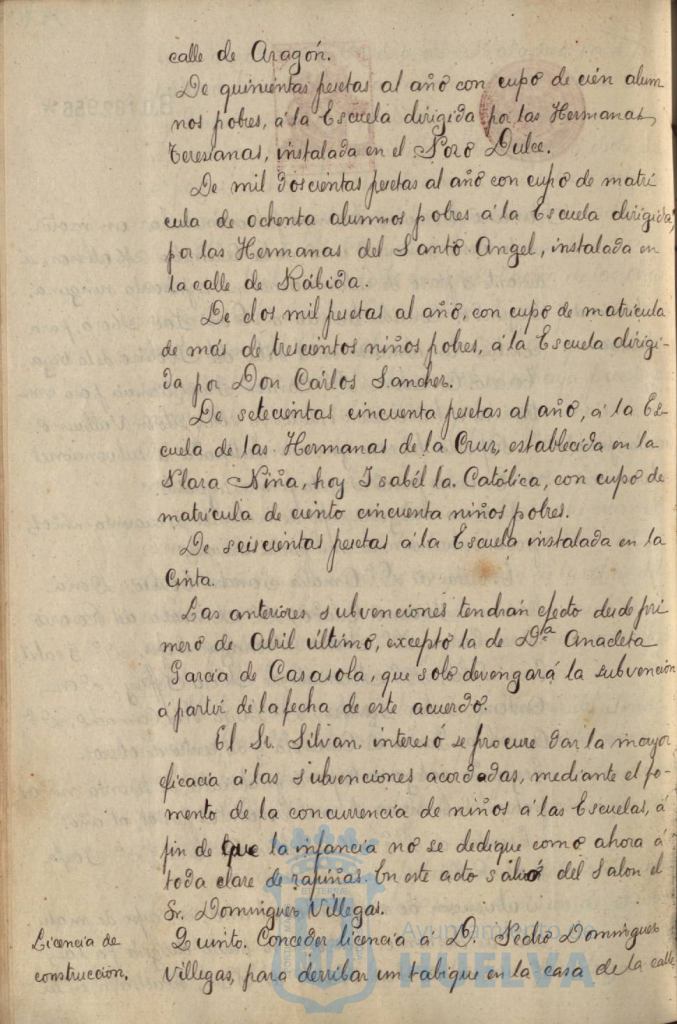 calle de Aragón.
De quinientas pesetas al año con cupo de cien alum
nos pobres, á la Escuela dirigida por las Hermanas
Teresianas, instalada en el Pozo Dulce.
De mil doscientas pesetas al año con cupo de matrí
cula de ochenta alunmos pobres á la Escuela dirigida,
por las Hermanas del Santo Angel, instalada en
la calle de Rábida.
De dos mil pesetas al año, con cupo de matrícula
de más de trescientos niños pobres, á la Escuela dirigi-
da por Don Carlos Sanchez.
De setecientas cincuenta pesetas al año, á la Es-
cuela de las Hermanas de la Cruz, establecida en la
Plaza Niña, hoy Isabél la Católica, con cupo de
matrícula de ciento cincuenta niños pobres.
De seiscientas pesetas á la Escuela instalada en la
Cinta.
Las anteriores subvenciones tendrán efecto desde pri
mero de Abril último, excepto la de Dª Anacleta
García de Casasola, que solo devengará la subvención
á partir de la fecha de este acuerdo.
El Sr. Silvan, interesó se procure dar la mayor
eficacia á las subvenciones acordadas, mediante el fo-
mento de la concurrencia de niños á las Escuelas, á
fin de que la infancia no se dedique como ahora á
toda clase de rapiñas. En este acto salió del Salon el
Sr. Dominguez Villegas.
Licencia de
construcción.
Quinto. Conceder licencia á D. Pedro Dominguez
Villegas, para derribar un tabique en la casa de la calle
Ayuntamiento de
HUELVA